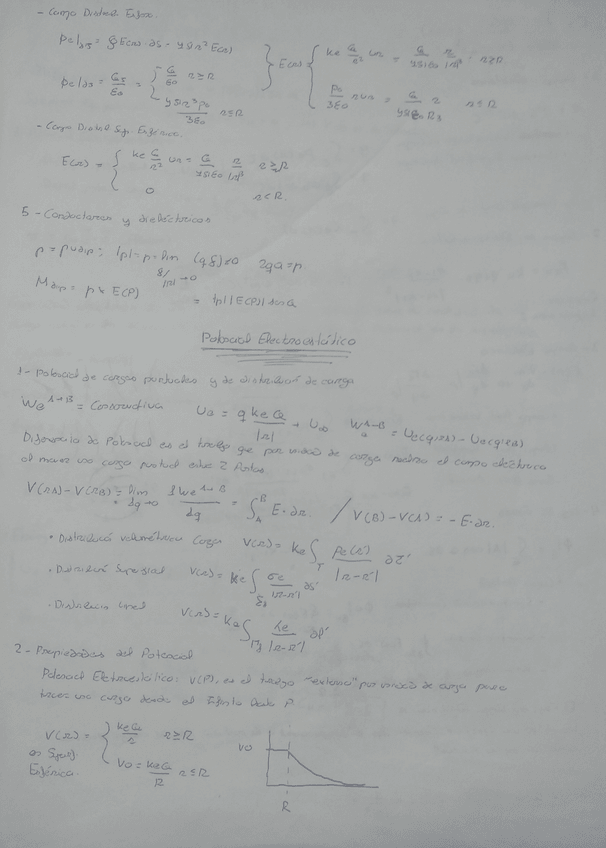 - Campo Distrib. Esfera.
E(r) = { ke Q/r² ur = Q/4πε0 r/|r|³ r≥R
Q/ε0 r≥R
ρ0/3ε0 r ur = Q/4πε0 R3 r r≤R
4πr³ρ0/3ε0 r≤R
- Campo Distrib. Sup. Esférica.
E(r) = { ke Q/r² ur = Q/4πε0 r/|r|³ r≥R
0 r<R
5 - Conductores y dieléctricos
p = p udip; |p| = p = lim (qδ) ≠0 2qa = p
Mdip = p x E(P) = |p||E(P)| sen α
Potencial Electrostático
1 - Potencial de cargas puntuales y de distribución de carga
We A→B = Conservativa Ue = q ke Q/|r| + U∞ We A→B = Ue(q,rA) - Ue(q,rB)
Diferencia de Potencial es el trabajo que por unidad de carga realiza el campo eléctrico
al mover una carga puntual entre 2 Puntos.
V(rA) - V(rB) = lim dq→0 We A→B/dq = ∫A B E·dr. / V(B) - V(A) = -E·dr.
· Distribución volumétrica Carga V(r) = Ke ∫T ρe(r')/|r-r'| dτ'
· Distribución Superficial V(r) = Ke ∫ σe/|r-r'| ds'
· Distribución Lineal V(r) = Ke ∫ λe/|r-r'| dl'
2 - Propiedades del Potencial
Potencial Electrostático: V(P), es el trabajo "externo" por unidad de carga para
traer una carga desde el Infinito hasta P
V(r) = { keQ/r r≥R
V0 = keQ/R r≤R
Esférica.
V0
R